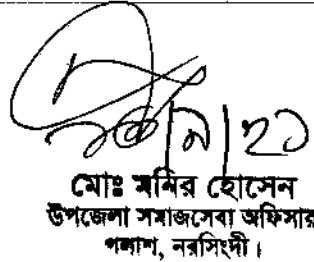 মোঃ মনির হোসেন
উপজেলা সমাজসেবা অফিসার
পলাশ, নরসিংদী।